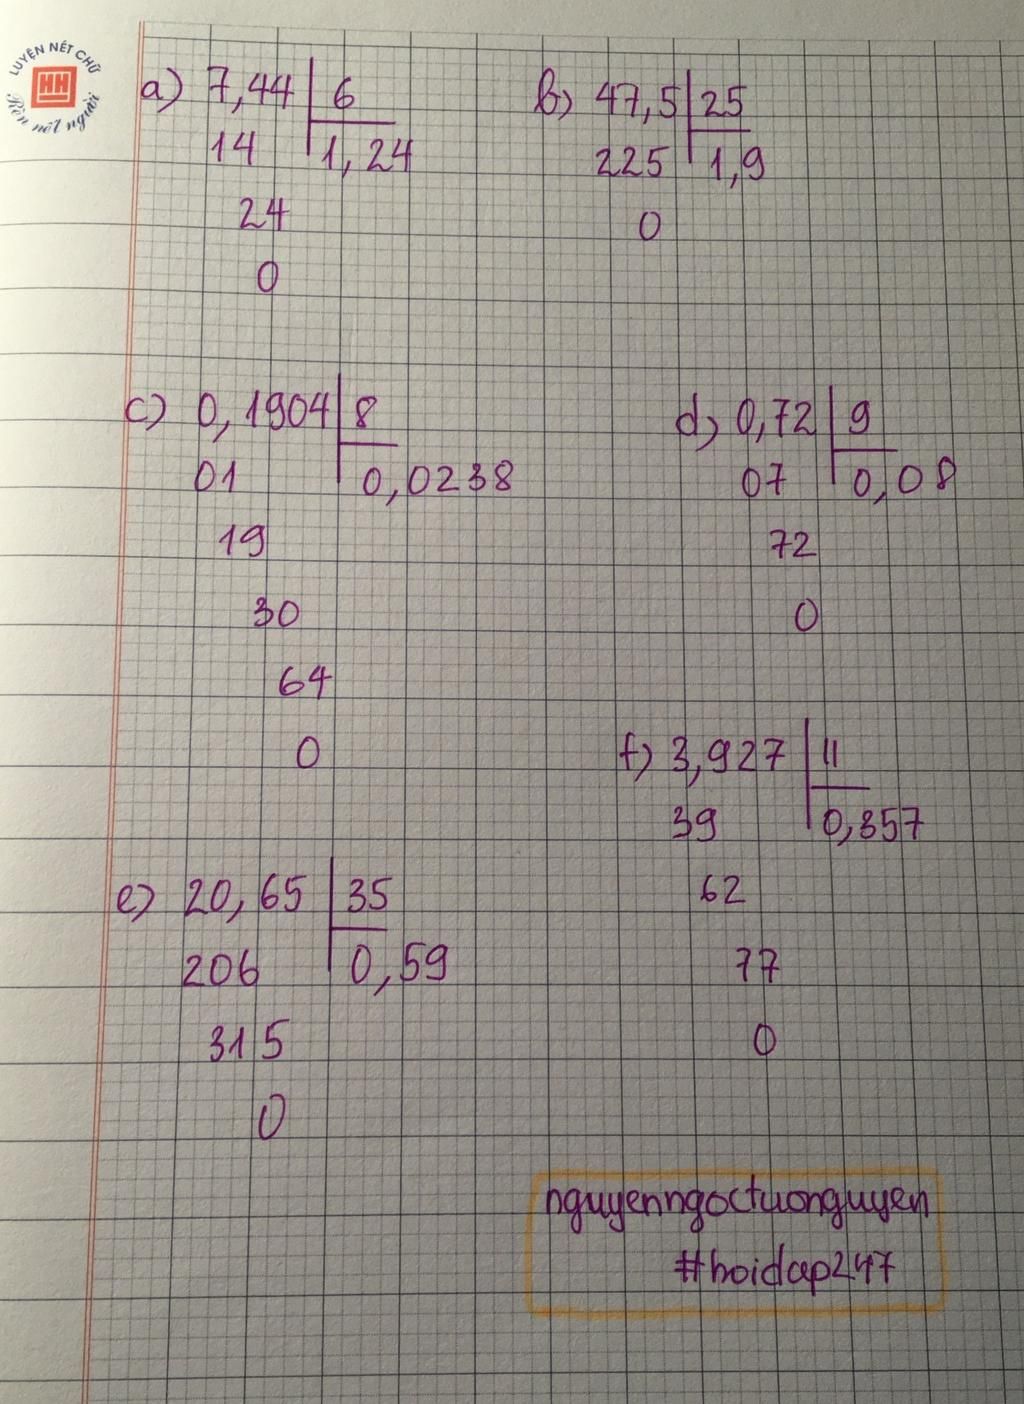 LUYỆN NÉT CHỮ
HH
Rèn nết người
a) 7,44 | 6
14 | 1,24
24
0
b) 47,5 | 25
225 | 1,9
0
c) 0,1904 | 8
01 | 0,0238
19
30
64
0
d) 0,72 | 9
07 | 0,08
72
0
e) 20,65 | 35
206 | 0,59
315
0
f) 3,927 | 11
39 | 0,357
62
77
0
nguyenngoctuonguyen
#hoidap247